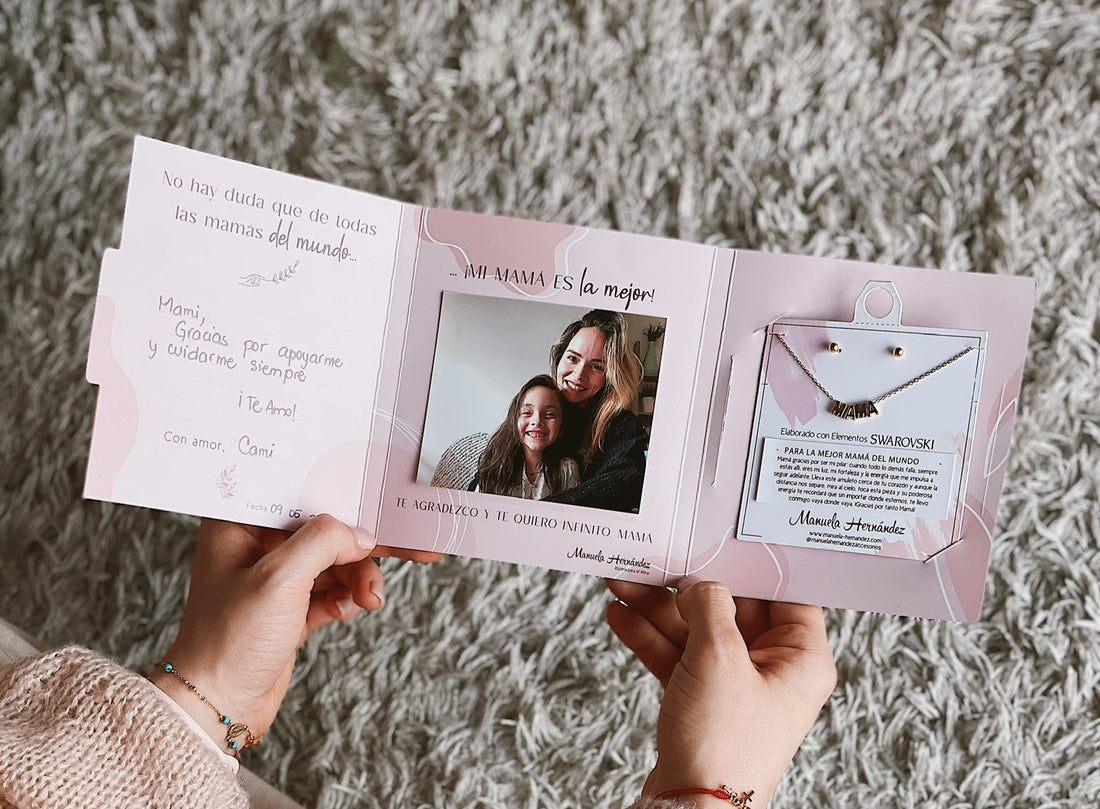 No hay duda que de todas
las mamas del mundo...
Mami,
Gracias por apoyarme
y cuidarme siempre
¡Te Amo!
Con amor, Cami
Fecha 09 05
... ¡MI MAMÁ ES la mejor!
TE AGRADEZCO Y TE QUIERO INFINITO MAMÁ
Manuela Hernández
Joyería para el Alma
MAMÁ
Elaborado con Elementos SWAROVSKI
· PARA LA MEJOR MAMÁ DEL MUNDO ·
Mamá gracias por ser mi pilar; cuando todo lo demás falla, siempre
estás allí, eres mi luz, mi fortaleza y la energía que me impulsa a
seguir adelante. Lleva este amuleto cerca de tu corazón y aunque la
distancia nos separe, mira al cielo, toca esta pieza y su poderosa
energía te recordará que sin importar donde estemos, te llevo
conmigo vaya donde vaya. ¡Gracias por tanto Mamá!
Manuela Hernández
www.manuela-hernandez.com
@manuelahernandezaccesorios